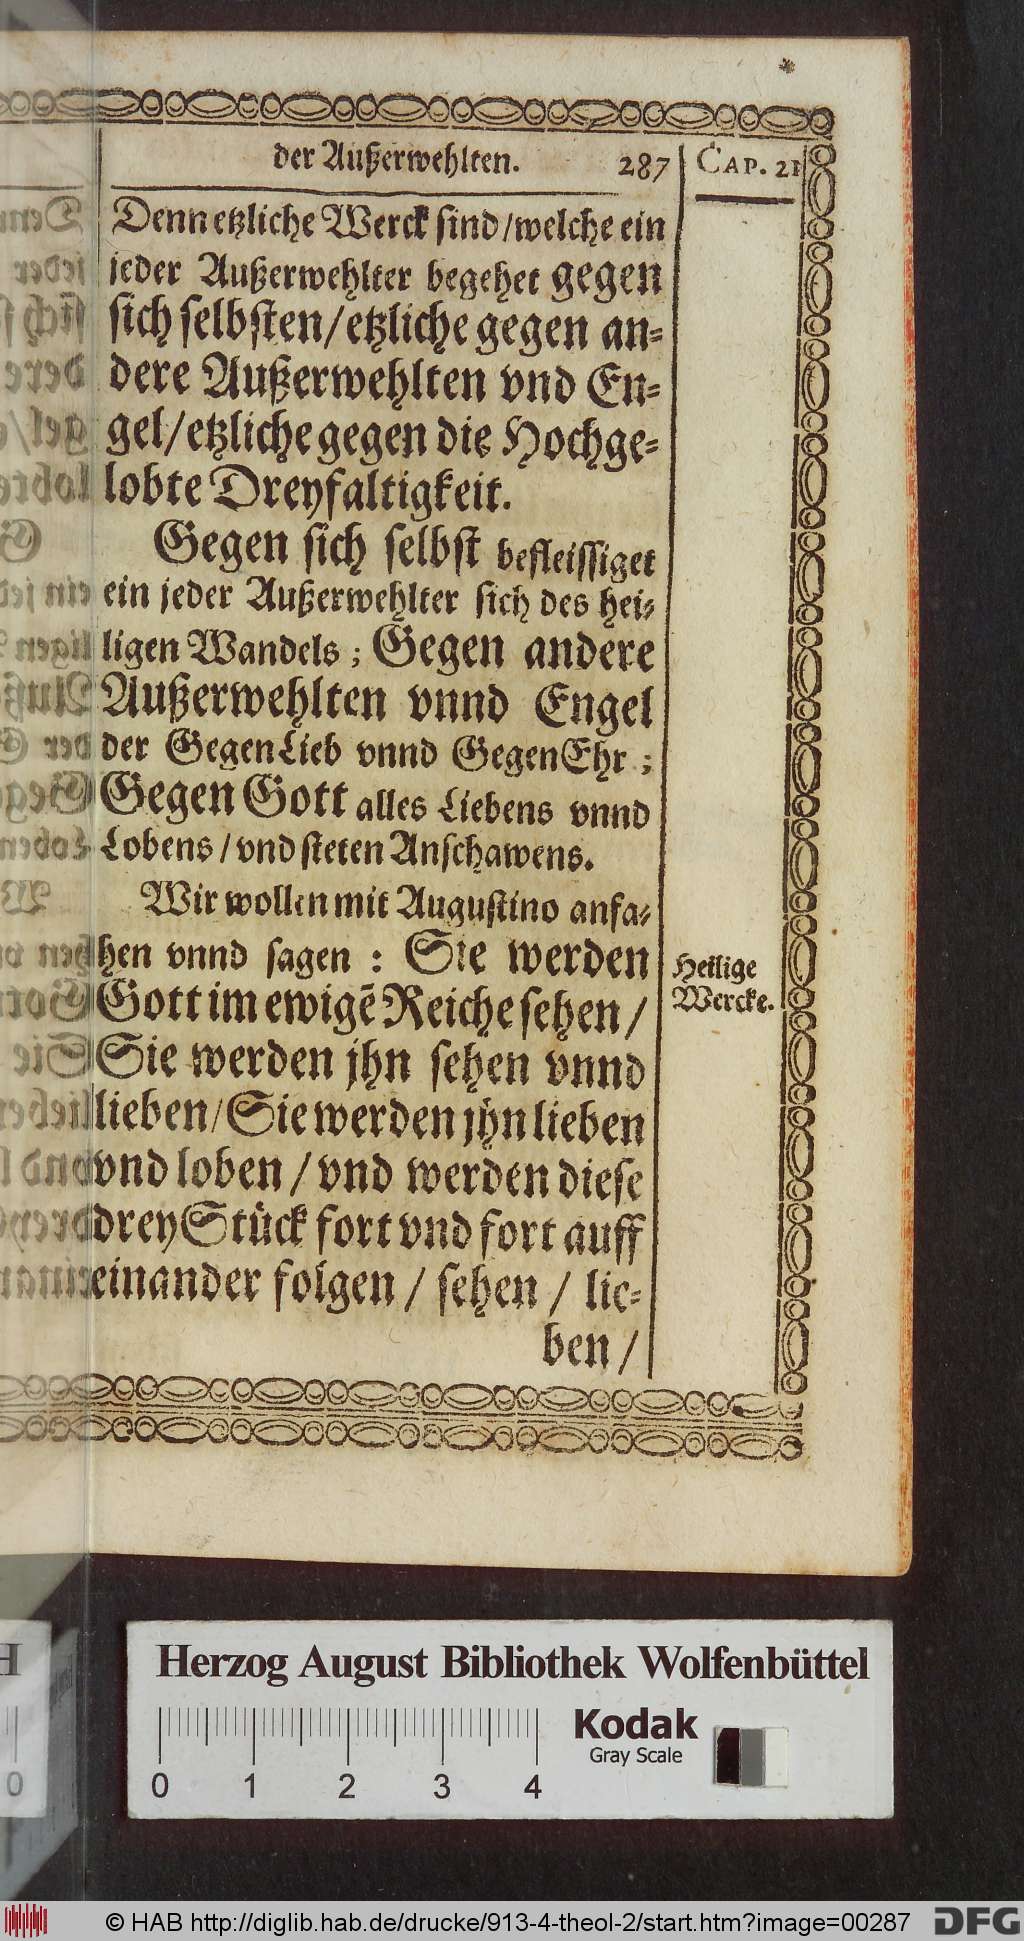 der Außerwehlten. 287 CAP. 21
Denn etzliche Werck sind/welche ein
jeder Außerwehlter begehet gegen
sich selbsten/etzliche gegen an-
dere Außerwehlten vnd En-
gel/etzliche gegen die Hochge-
lobte Dreyfaltigkeit.
Gegen sich selbst befleissiget
ein jeder Außerwehlter sich des hei-
ligen Wandels; Gegen andere
Außerwehlten vnnd Engel
der GegenLieb vnnd GegenEhr;
Gegen Gott alles Liebens vnnd
Lobens/vnd steten Anschawens.
Wir wollen mit Augustino anfa-
hen vnnd sagen: Sie werden
Gott im ewigẽ Reiche sehen/
Sie werden jhn sehen vnnd
lieben/Sie werden jhn lieben
vnd loben/vnd werden diese
drey Stück fort vnd fort auff
einander folgen/sehen/lie-
ben/
Heilige
Wercke.
Herzog August Bibliothek Wolfenbüttel
Kodak
Gray Scale
0 1 2 3 4
0
© HAB http://diglib.hab.de/drucke/913-4-theol-2/start.htm?image=00287
DFG